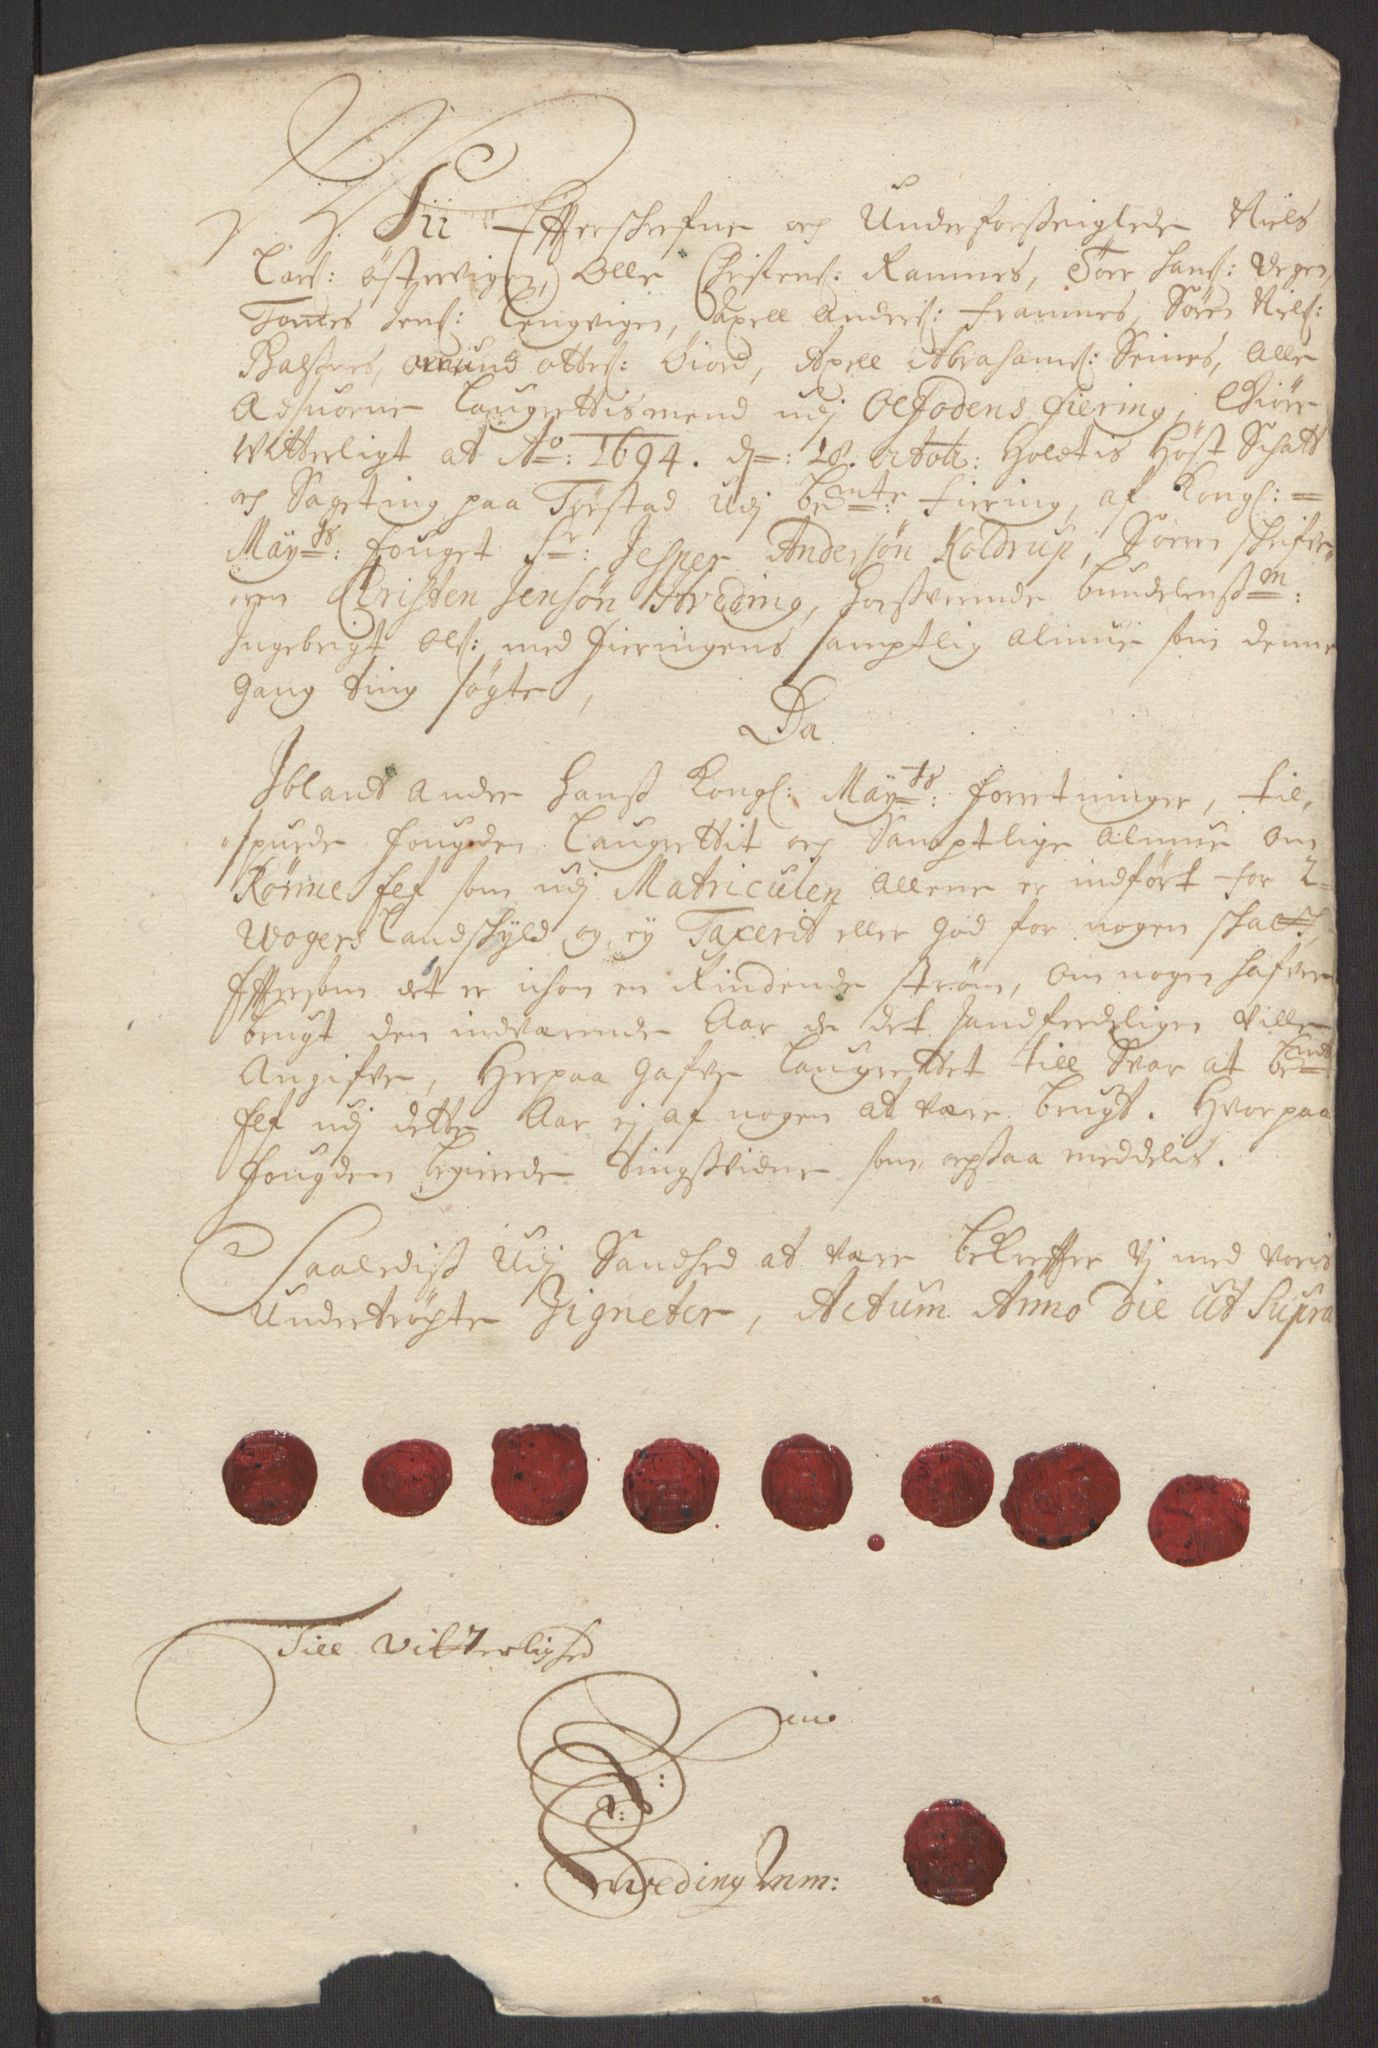 Vii Effterschrefne och Underforseiglede Niels
Lars: Östervigen, Olle Christens: Ramnes, Törr Hans: Degen,
Tomes Jens: Lengvigen, Axell Anders: Framnes, Sören Niels:
Balsnes, Amund Ottes: Öiord, Axell Abrahams: Seines, Alle
Adsuorne Laugrettismend udj Ofodens fiering, Giöre
Witterligt at Ao: 1694. d: 18. octobr: Holdtis Höst Schatt
och Sageting paa Torstad Udj bemte: fiering, af Kongl:
Mayts: fouget Sr: Jesper Andersön Koldrup, Sorenschrifve
ren Christen Jensön Hveding, Hossverende bundelenssm:
Ingebrigt Ols: med fieringens samptlig almue som denne
gang ting søgte,
Da
Iblandt andre Hanss Kongl: Mayts: forretninger, til,
spurde fougden Laugrettit och Samptlige almue om
Körme Elf som udj Matriculen allene er indfört for 2
Woger Landschyld og ey Taxerit eller god for nogen schatt,
Effersom det er ichon en Rindende ström, om nogen hafver
brugt den indværende Aar de det Sandferdeligen ville
Angifve, Herpaa gafve Laugrettet till Svar at bemte
Elf udj dette Aar ej af nogen at være brugt. Hvorpaa
fougden begierede tingssvidne som ochsaa meddelis.
Saalediss Udj Sandhed at være bekreffter Vj med voris
Undertrögte Zigneter, Actum Anno Die ut Supra
Till vitterlighed
C: J:
Hveding Mm: